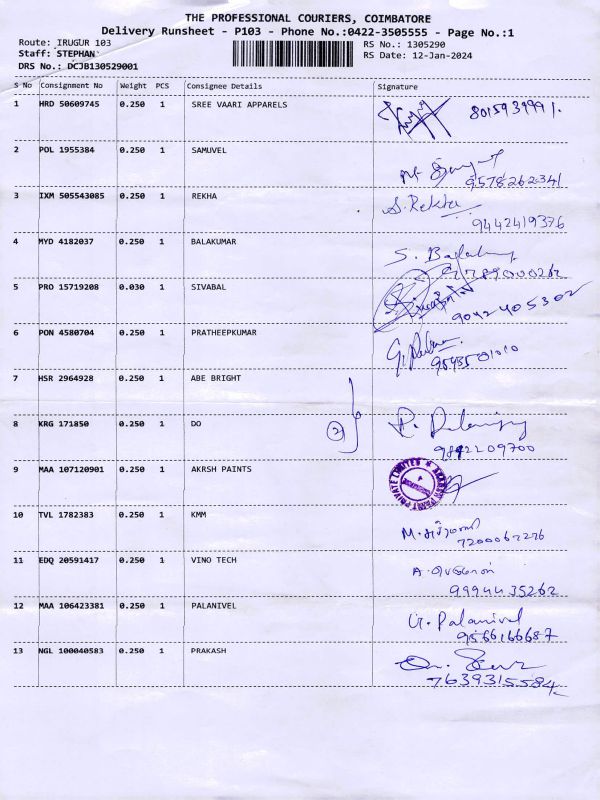 THE PROFESSIONAL COURIERS, COIMBATORE
Delivery Runsheet - P103 - Phone No.:0422-3505555 - Page No.:1
Route: IRUGUR 103 RS No.: 1305290
Staff: STEPHAN RS Date: 12-Jan-2024
DRS No.: DCJB130529001
S No Consignment No Weight PCS Consignee Details Signature
1 HRD 50609745 0.250 1 SREE VAARI APPARELS 8015939991.
2 POL 1955384 0.250 1 SAMUVEL
9578262341
3 IXM 505543085 0.250 1 REKHA S. Rekha
9442419376
4 MYD 4182037 0.250 1 BALAKUMAR
5 PRO 15719208 0.030 1 SIVABAL
9042405302
6 PON 4580704 0.250 1 PRATHEEPKUMAR
7 HSR 2964928 0.250 1 ABE BRIGHT
8 KRG 171850 0.250 1 DO 2
9842209700
9 MAA 107120901 0.250 1 AKRSH PAINTS
10 TVL 1782383 0.250 1 KMM
7200067276
11 EDQ 20591417 0.250 1 VINO TECH
9994435262
12 MAA 106423381 0.250 1 PALANIVEL G. Palanivel
9566166687
13 NGL 100040583 0.250 1 PRAKASH
7639315584